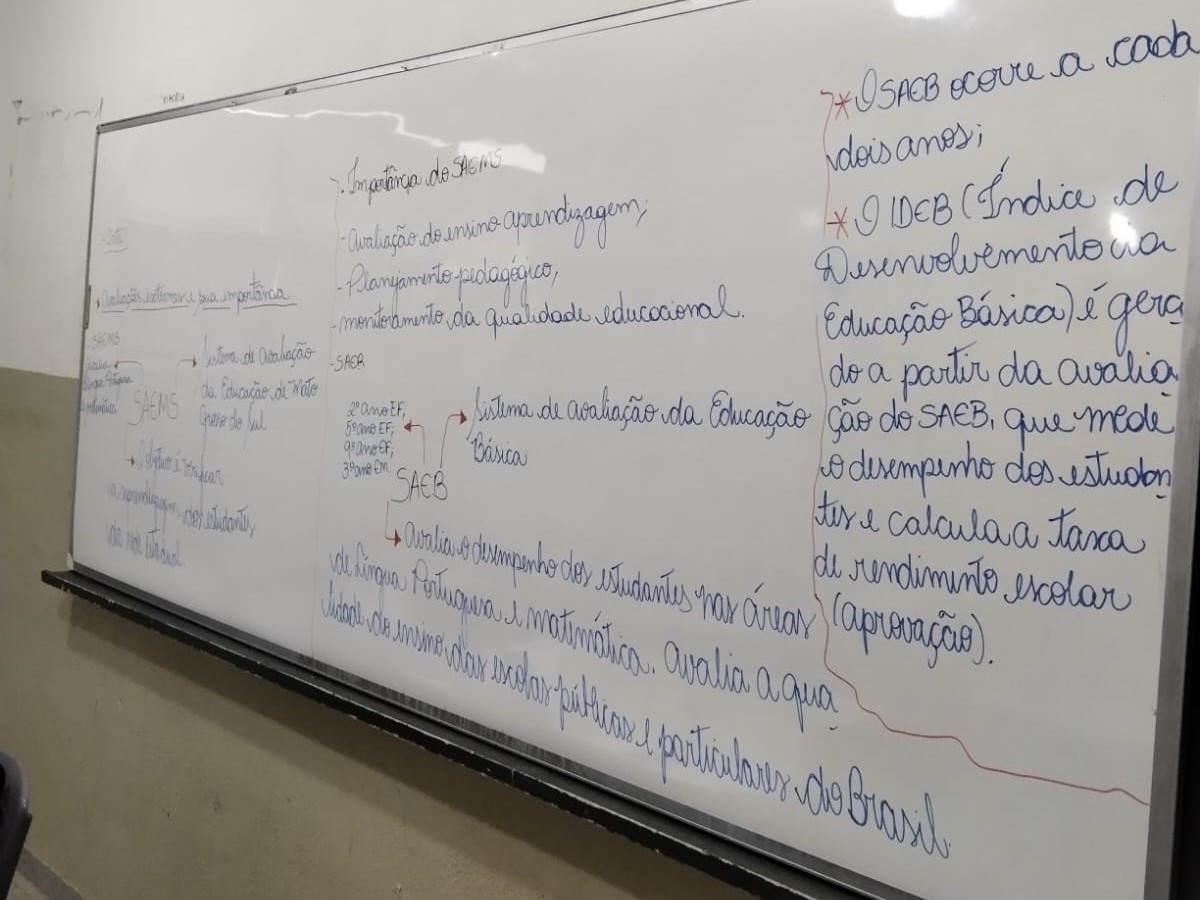 - Data
• Avaliações externas e sua importância
SAEMS
Avalia
Língua Portuguesa
e matemática
SAEMS
Sistema de Avaliação
da Educação de Mato
Grosso do Sul
Objetivo é verificar
a aprendizagem dos estudantes
da rede Estadual.
. Importância do SAEMS
- Avaliação do ensino aprendizagem;
- Planejamento pedagógico,
- monitoramento da qualidade educacional.
- SAEB
2º ano EF,
5º ano EF;
9º ano EF;
3º ano Em.
SAEB
Sistema de avaliação da Educação
Básica
Avalia o desempenho dos estudantes nas áreas
de Língua Portuguesa e matemática. Avalia a qua
lidade do ensino das escolas públicas e particulares do Brasil.
* O SAEB ocorre a cada
dois anos;
* O IDEB (Índice de
Desenvolvimento da
Educação Básica) é gera
do a partir da avalia
ção do SAEB, que mede
o desempenho dos estudan
tes e calcula a taxa
de rendimento escolar
(aprovação).